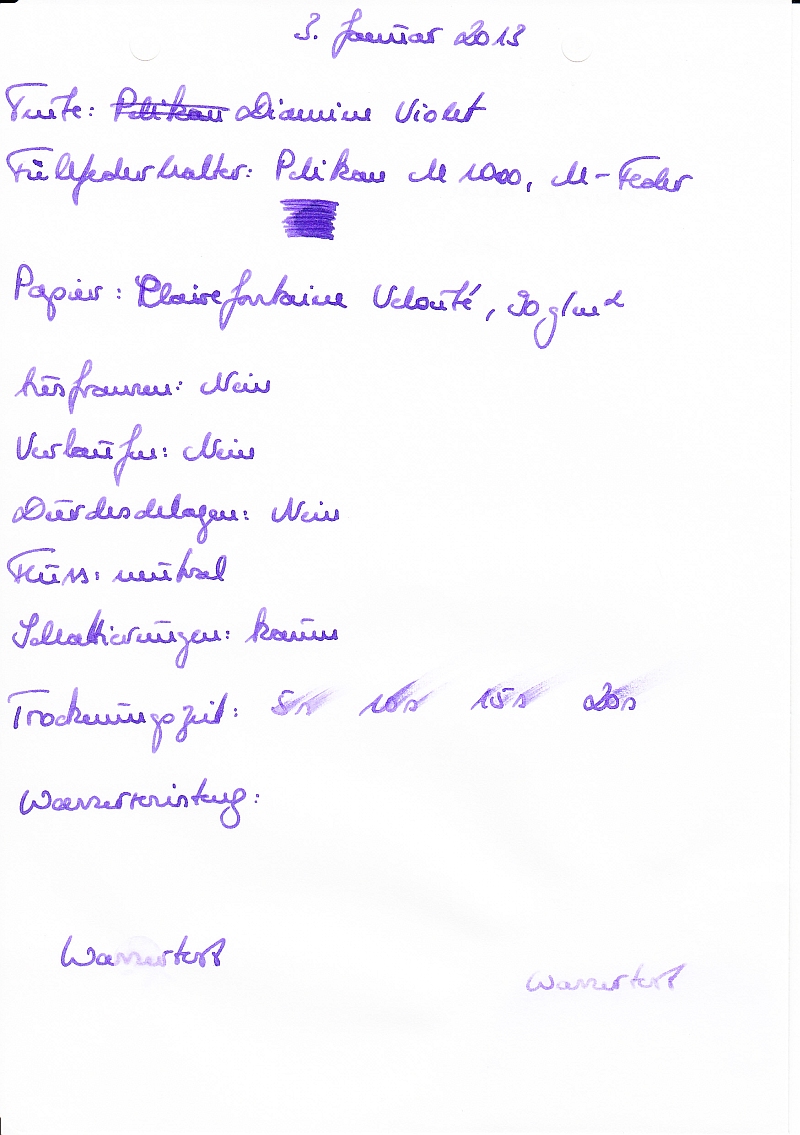 3. Januar 2013
Tinte: Pelikan Diamine Violet
Füllfederhalter: Pelikan M 1000, M-Feder
Papier: Clairefontaine Velouté, 90 g/m²
Ausfransen: Nein
Verlaufen: Nein
Durchschlagen: Nein
Fluss: neutral
Schattierungen: kaum
Trocknungszeit: 5s 10s 15s 20s
Wasserresistenz:
Wassertest
Wassertest